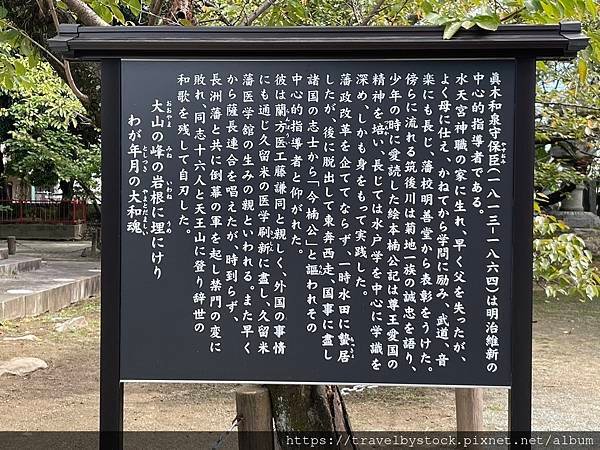 眞木和泉守保臣(一八一三ー一八六四)は明治維新の
やすおみ
中心的指導者である。
水天宮神職の家に生れ、早く父を失ったが、
よく母に仕え、かねてから学問に励み、武道、音
楽にも長じ、藩校明善堂から表彰をうけた。
傍らに流れる筑後川は菊地一族の誠忠を語り、
少年の時に愛読した絵本楠公記は尊王愛国の
精神を培い、長じては水戸学を中心に学識を
深め、しかも身をもって実践した。
藩政改革を企ててならず、一時水田に蟄居
したが、後に脱出して東奔西走、国事に盡し
諸国の志士から「今楠公」と謳われその
中心的指導者と仰がれた。
彼は蘭方医工藤謙同と親しく、外国の事情
にも通じ久留米の医学刷新に盡し、久留米
藩医学館の生みの親といわれる。また早く
から薩長連合を唱えたが、時到らず、
長洲藩と共に倒幕の軍を起し禁門の変に
敗れ、同志十六人と天王山に登り辞世の
和歌を残して自刃した。
大山の峰の岩根に埋にけり
おおやま みね いわね うめ
わが年月の大和魂
としつき やまとだましい
https://travelbystock.pixnet.net/album